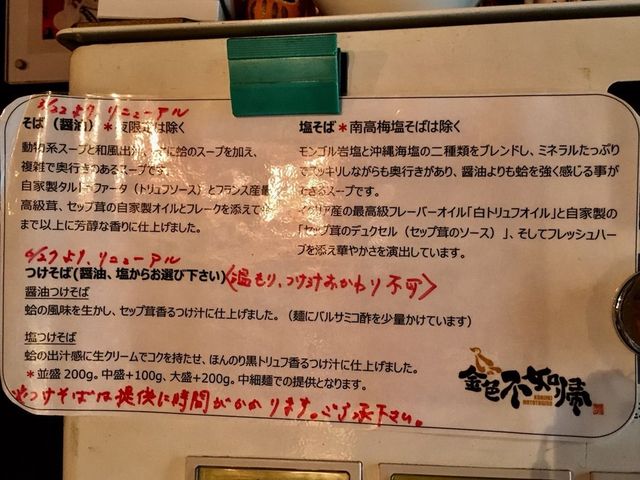 より リニューアル
そば（醤油）＊夜限定は除く
動物系スープと和風出汁、に蛤のスープを加え、
複雑で奥行きのあるスープです。
自家製タルトゥファータ（トリュフソース）とフランス産
高級茸、セップ茸の自家製オイルとフレークを添えて
まで以上に芳醇な香りに仕上げました。
塩そば＊南高梅塩そばは除く
モンゴル岩塩と沖縄海塩の二種類をブレンドし、ミネラルたっぷり
でスッキリしながらも奥行きがあり、醤油よりも蛤を強く感じる事が
できるスープです。
イタリア産の最高級フレーバーオイル「白トリュフオイル」と自家製の
「セップ茸のデュクセル（セップ茸のソース）」、そしてフレッシュハー
ブを添え華やかさを演出しています。
6/27より、リニューアル
つけそば(醤油、塩からお選び下さい)〈塩もり、つけ汁おかわり不可〉
醤油つけそば
蛤の風味を生かし、セップ茸香るつけ汁に仕上げました。（麺にバルサミコ酢を少量かけています）
塩つけそば
蛤の出汁感に生クリームでコクを持たせ、ほんのり黒トリュフ香るつけ汁に仕上げました。
＊並盛200g。中盛+100g、大盛+200g。中細麺での提供となります。
※つけそばは提供に時間がかかります。ご了承下さい。
金色不如帰
KONJIKI
HOTOTOGISU